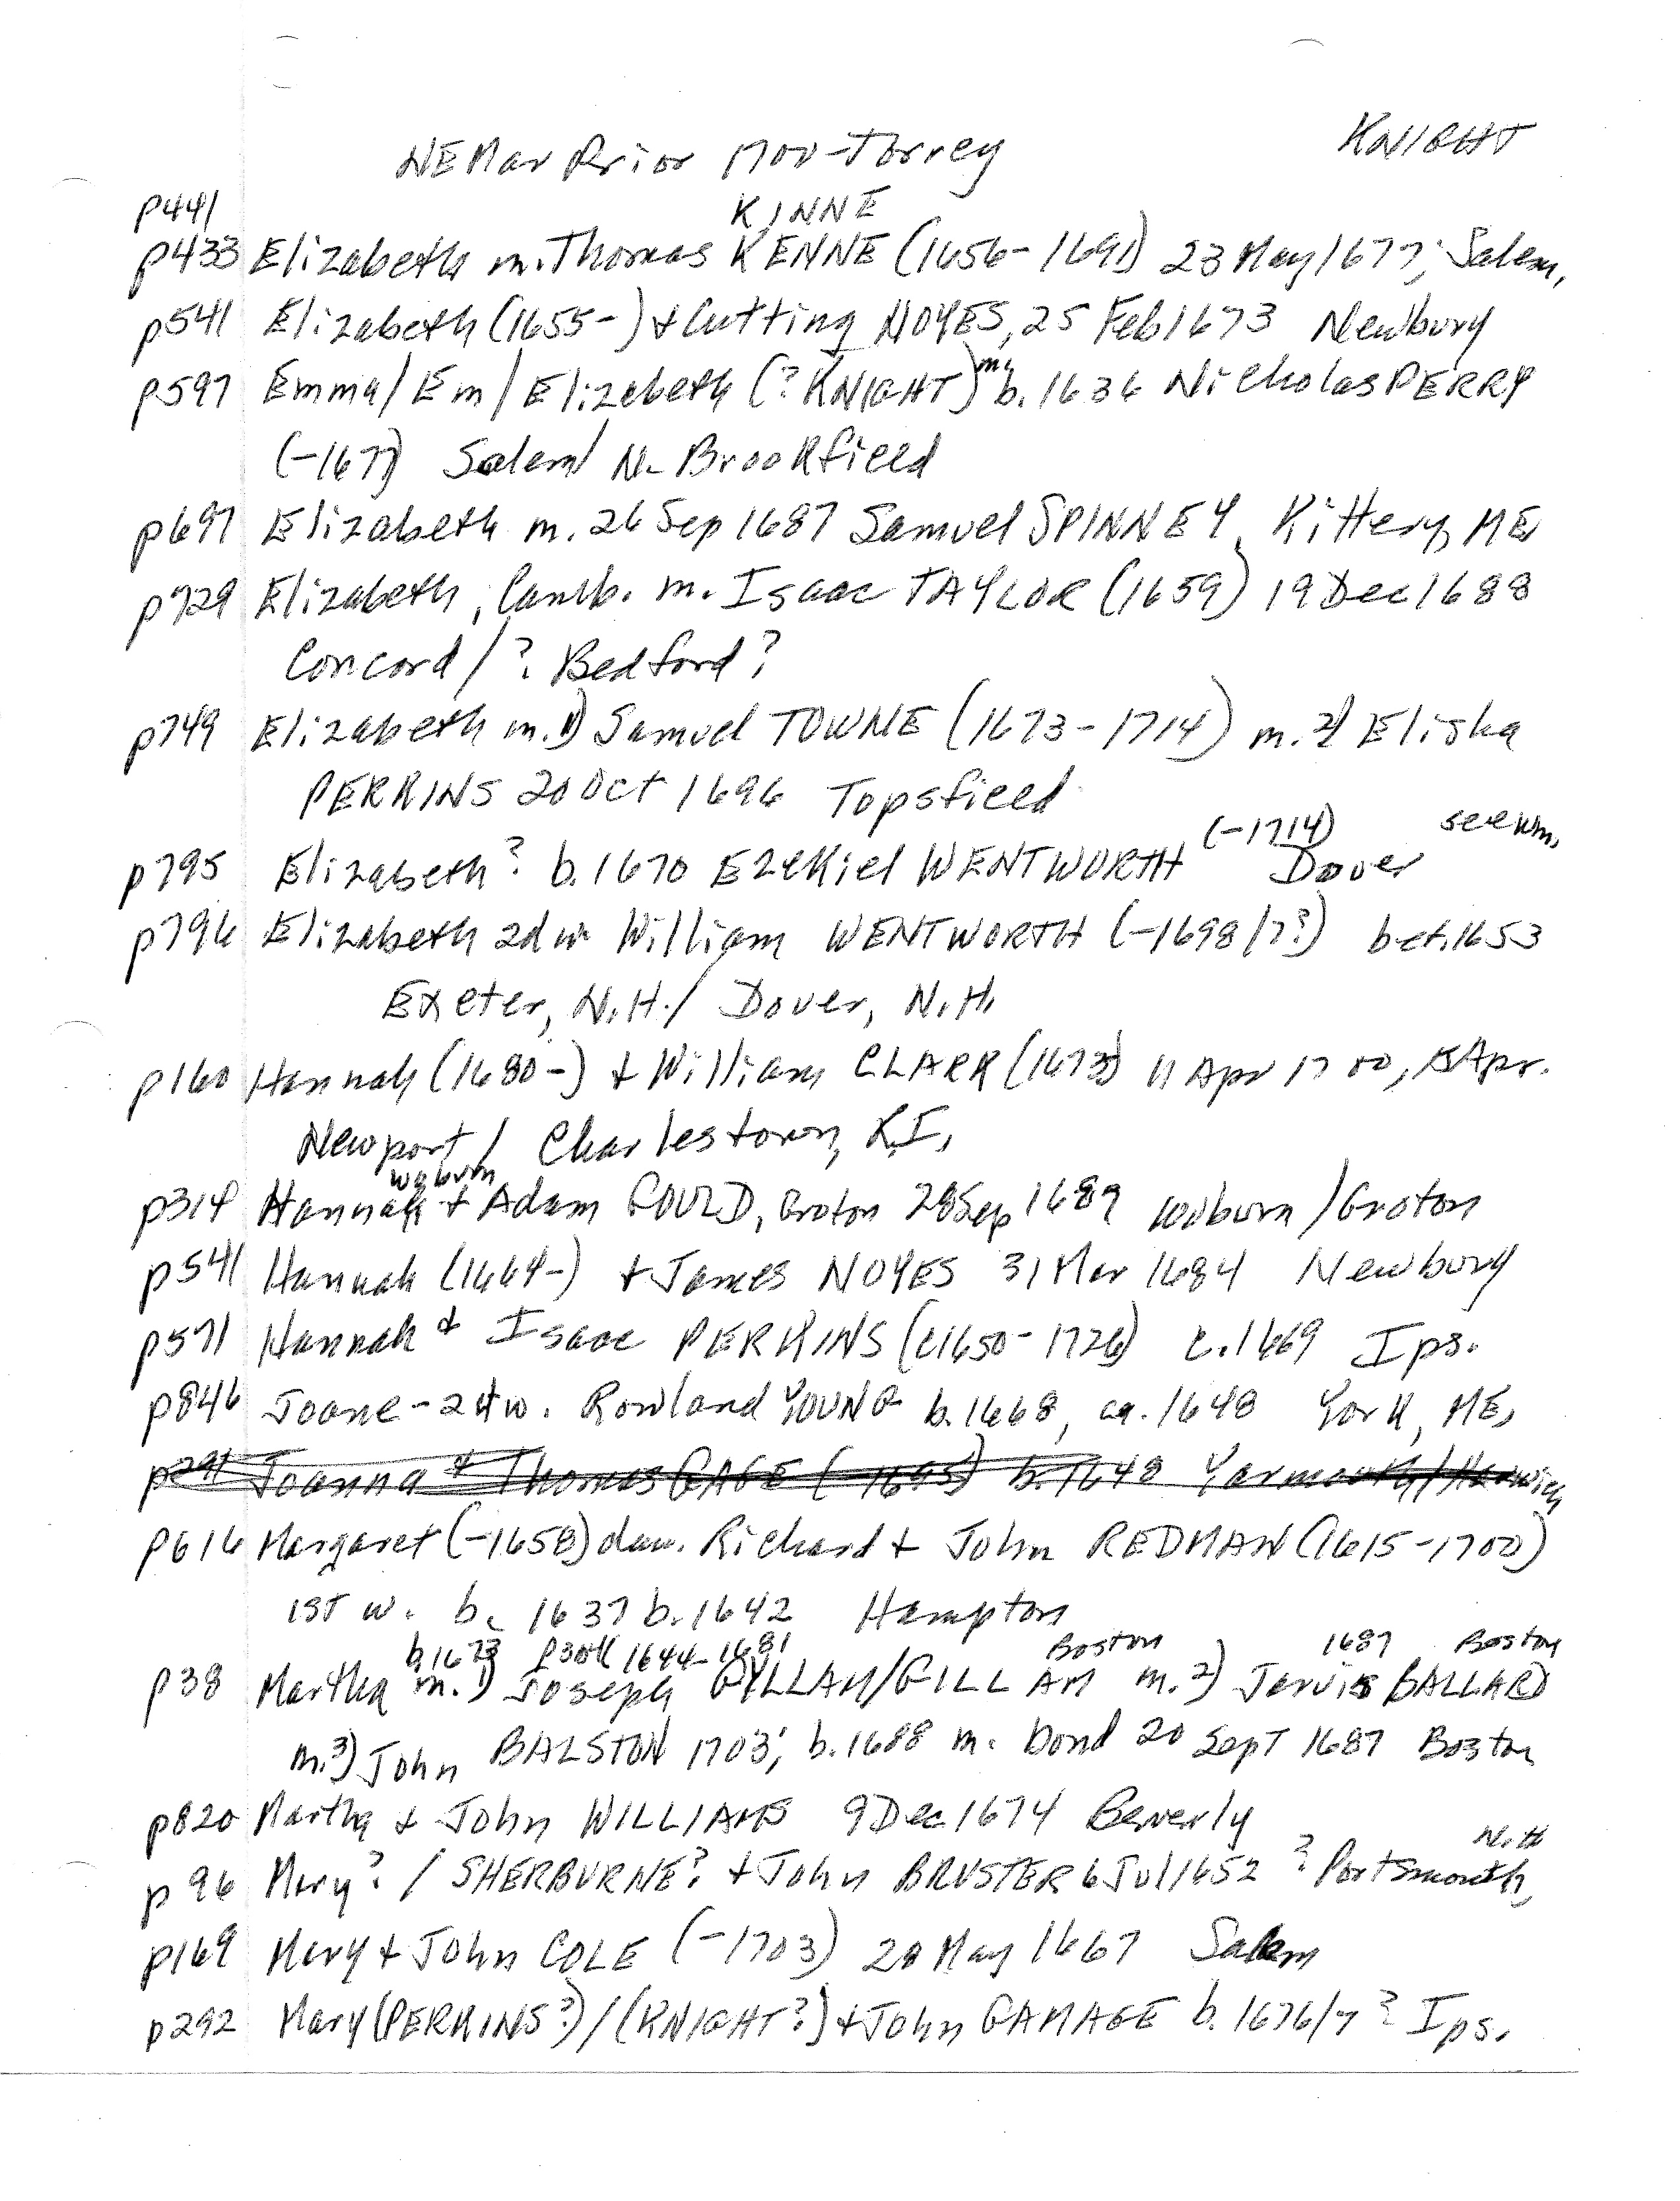 KNIGHT
NE Mar Prior 1700 - Torrey
p441 KINNE
p433 Elizabeth m. Thomas KENNE (1656-1691) 23 May 1677; Salem,
p541 Elizabeth (1655-) + Cutting NOYES, 25 Feb 1673 Newbury
p597 Emma/Em/Elizebeth (?KNIGHT) m. b. 1636 Nicholas PERRY
(-167?) Salem/ N. Brookfield
p697 Elizabeth m. 26 Sep 1687 Samuel SPINNEY, Kittery, ME
p729 Elizabeth, Camb. m. Isaac TAYLOR (1659) 19 Dec 1688
Concord/?. Bedford?
p749 Elizabeth m. 1) Samuel TOWNE (1673-1714) m. 2) Elisha
PERKINS 20 Oct 1696 Topsfield
(-1714) see Wm,
p795 Elizabeth? b. 1670 Ezekiel WENTWORTH Dover
p796 Elizabeth 2d w William WENTWORTH (-1698/7?) bet. 1653
Exeter, N.H./ Dover, N.H.
p160 Hannah (1680-) + William CLARK (1673) 11 Apr 1700, 15 Apr.
Newport/ Charlestown, R.I.
Woburn
p314 Hannah + Adam GOULD, Groton 28 Sep 1689 Woburn/Groton
p541 Hannah (1664-) + James NOYES 31 Mar 1684 Newbury
p571 Hannah + Isaac PERKINS (c1650-1726) c. 1669 Ips.
p846 Joane - 2d w. Rowland YOUNG b. 1668, ca. 1648 York, ME,
p291 Joanna + Thomas GAGE (-1695) b. 1648 Yarmouth/Harwich
p616 Margaret (-1658) dau. Richard + John REDMAN (1615-1700)
1ST w. b. 1637 b. 1642 Hampton
b. 1673 p304 1644-1681 Boston 1687 Boston
p38 Martha m. 1) Joseph GYLLAM/GILLAM m. 2) Jarvis BALLARD
m. 3) John BALSTON 1703; b. 1688 m. bond 20 Sept 1687 Boston
p820 Martha + John WILLIAMS 9 Dec 1674 Beverly
N.H.
p96 Mary? / SHERBURNE? + John BRUSTER 6 Jul 1652 ? Portsmouth,
p169 Mary + John COLE (-1703) 20 May 1667 Salem
p292 Mary (PERKINS?)/(KNIGHT?) + John GAMAGE b. 1676/7? Ips.